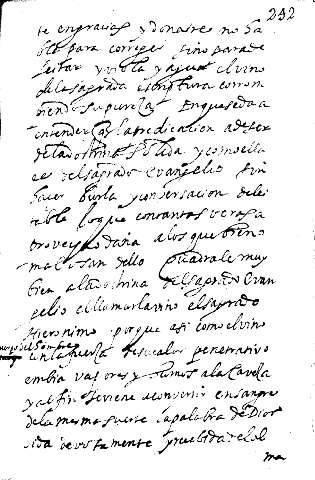 292
te en gracias y donaires no ha
bla para corregir sino para de
leitar y viola y agua el vino
de la sagrada escriptura corrom
diendo su pureza En que se da a
entender la predicacion a de ser
de la dotrina solida y como ella
es del sagrado Evangelio sin
hacer burla y conversacion delei
table lo que con tantas veras a
provey daña a los que bieno
mal usan dello Quadrale muy
bien a la dotrina del sagrado Evan
gelio el llamarla vino el sagrado
Hieronimo porque asi como el vino
en la fuerza de su calor penetrativo
embia vapores y humos a la Caveza
y al fin se viene a convertir en sangre
de la mesma suerte la palabra de Dios
oida devotamente y recebida el
ma